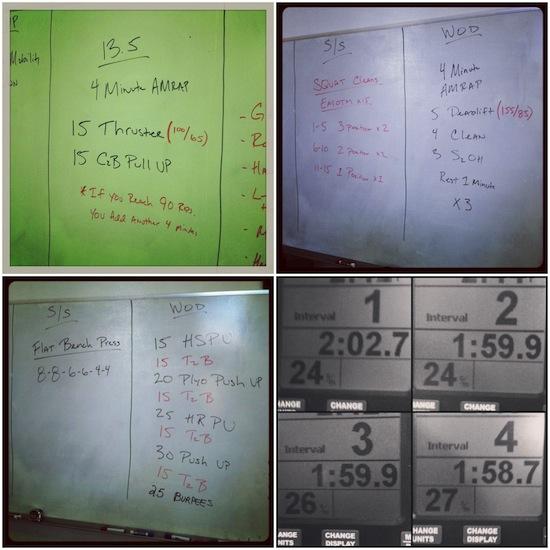 13.5
4 Minute AMRAP
15 Thruster (100/65)
15 C2B Pull UP
*If You Reach 90 Reps
You Add Another 4 Minutes
Mobility
S/S
SQUAT Cleans
EMOTM x15
1-5 3 Position x2
6-10 2 Position x2
11-15 1 Position x1
WOD
4 Minute
AMRAP
5 Deadlift (155/85)
4 Clean
3 S2OH
Rest 1 Minute
x3
S/S
FLAT Bench Press
8-8-6-6-4-4
WOD
15 HSPU
15 T2B
20 Plyo Push UP
15 T2B
25 HR PU
15 T2B
30 Push UP
15 T2B
25 BURPEES
Interval 1
2:02.7
24
CHANGE
Interval 2
1:59.9
24
CHANGE
DISPLAY
Interval 3
1:59.9
26
CHANGE
DISPLAY
Interval 4
1:58.7
27
CHANGE
UNITS
CHANGE
DISPLAY